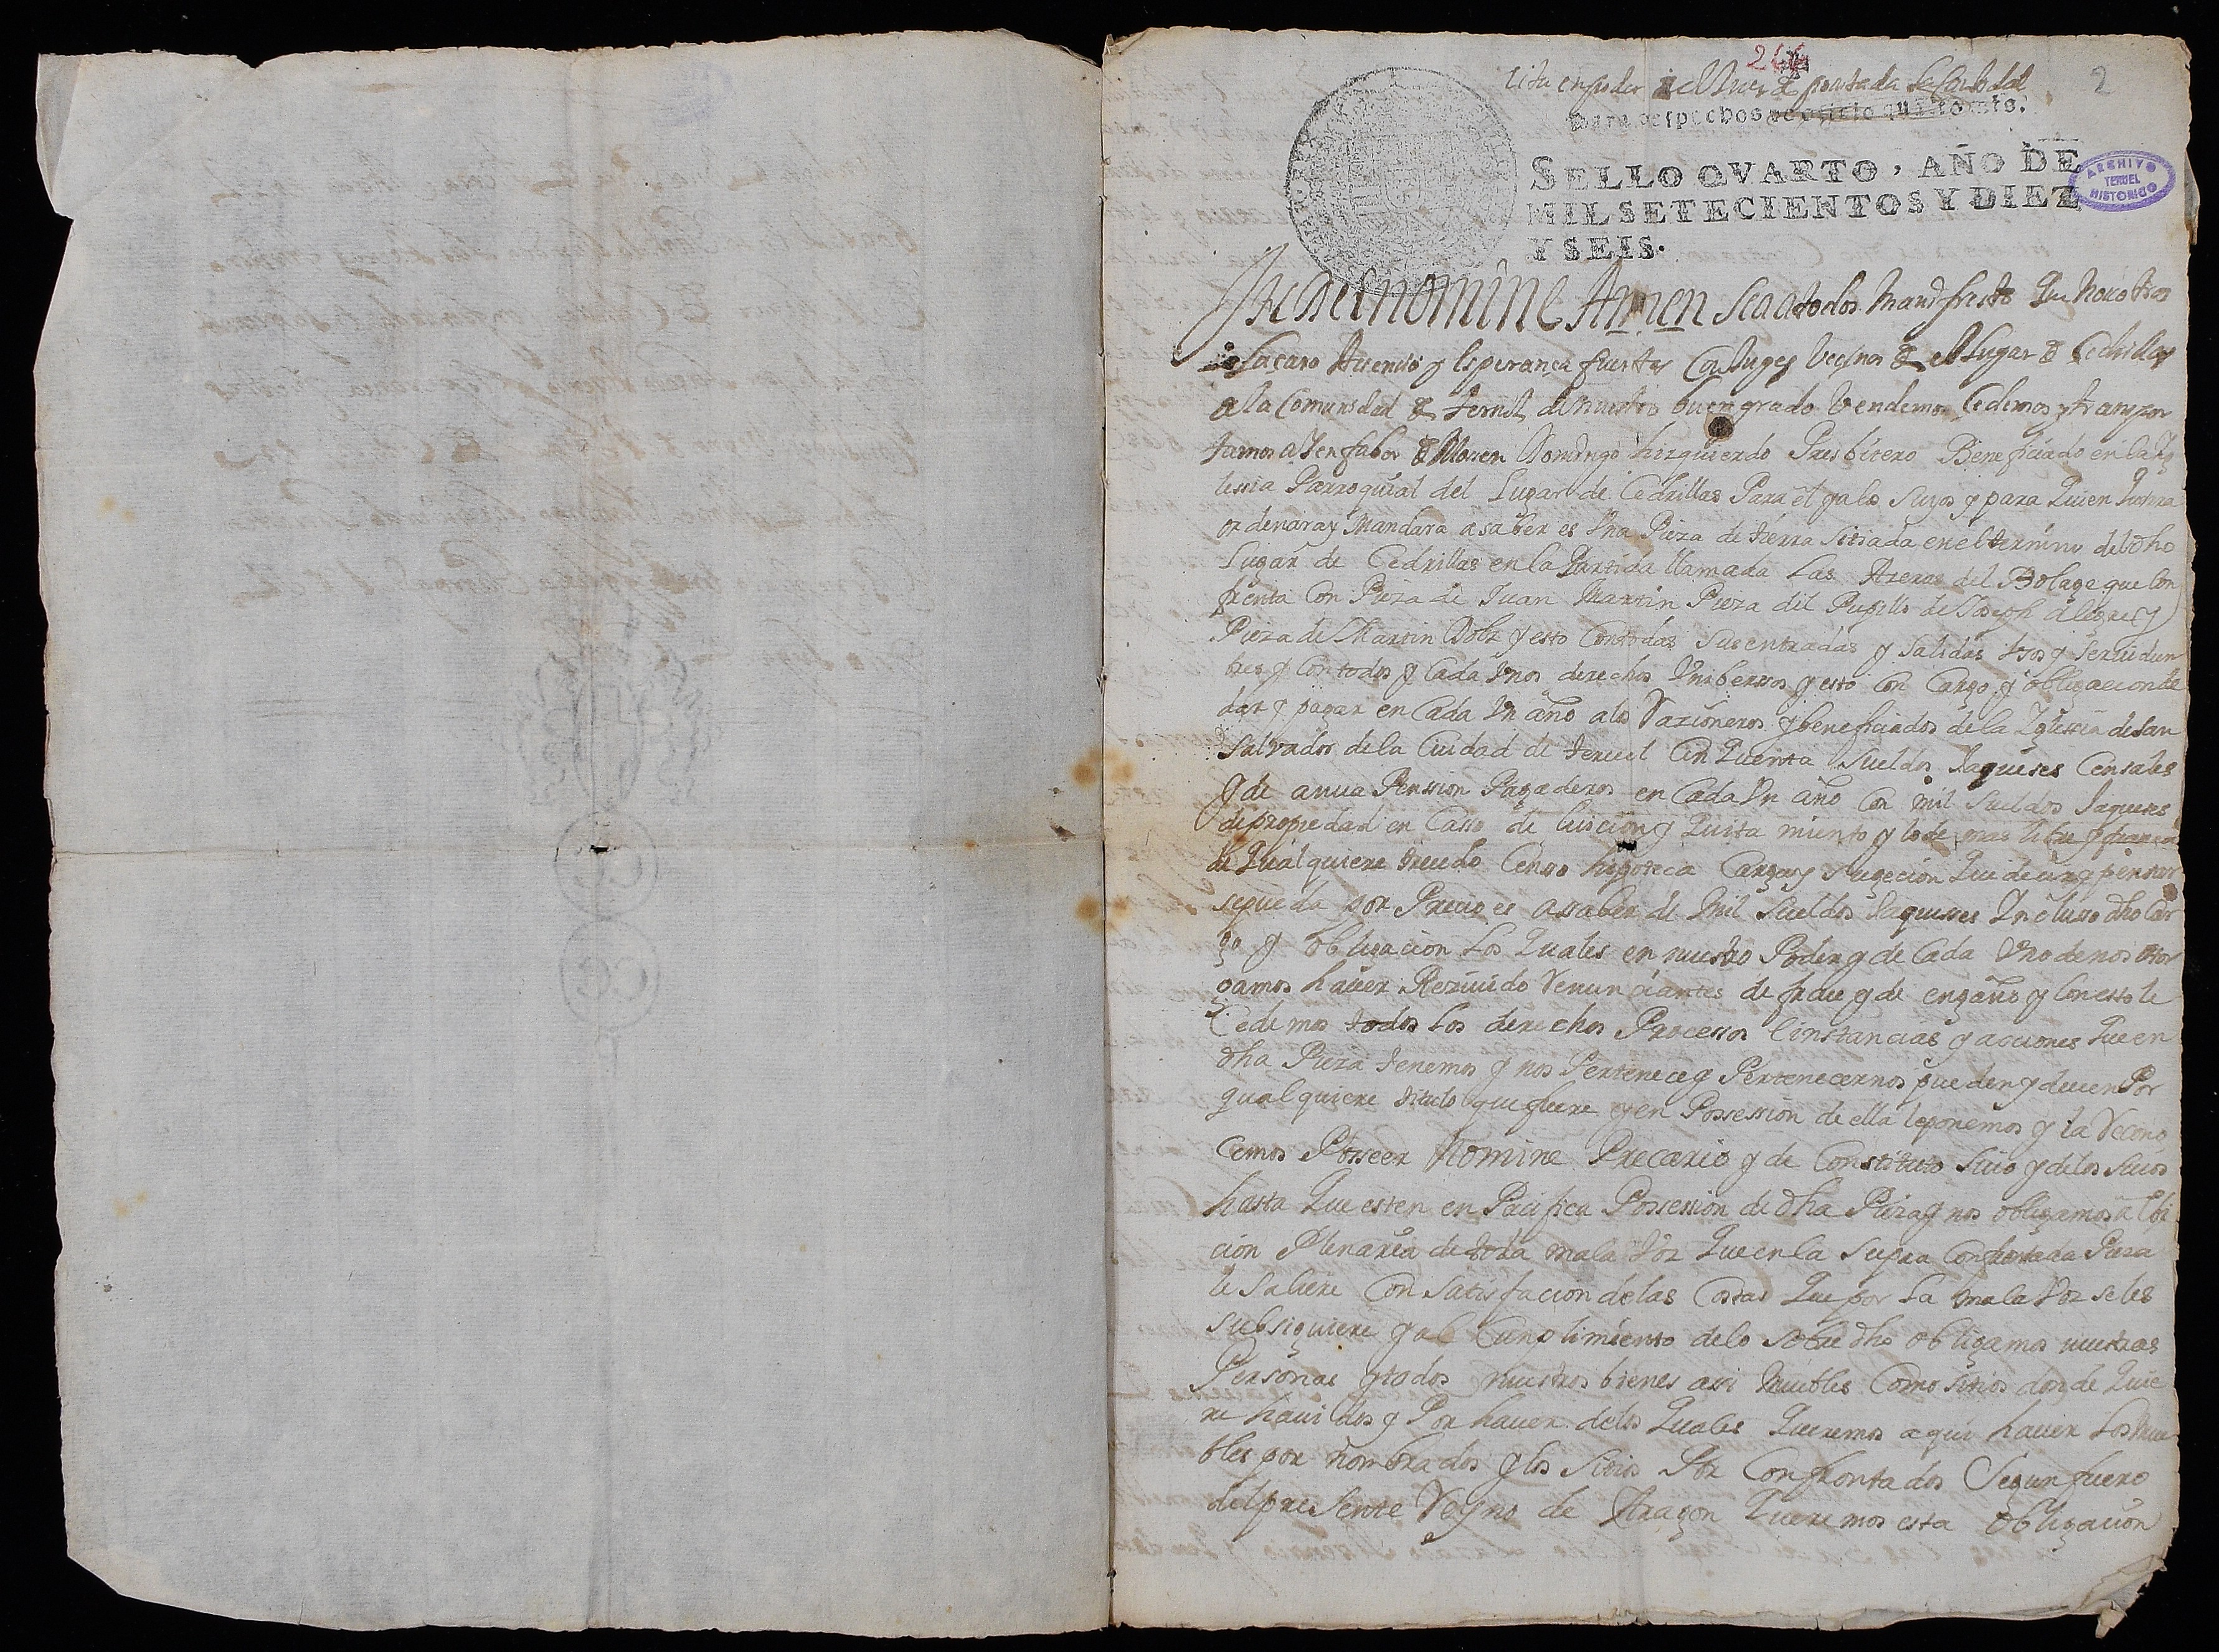 266
2
Para despachos de oficio quatro mrs.
SELLO QVARTO, AÑO DE
MIL SETECIENTOS Y DIEZ
Y SEIS.
ARCHIVO
TERUEL
HISTORICO
In Dei nomine Amen sea atodos Manifiesto Que Nosotros
Laçaro Asencio y Esperança fuertes Conjuges Veçinos de el Lugar de Cedrillas
de la Comunidad de teruel de nuestro buen grado Vendemos Cedimos y transpor
tamos a y en fabor de Mosen Domingo hizquierdo Presbitero Beneficiado en la Yg
lessia Parroquial del Lugar de Cedrillas Para el y a los Suyos y para Quien Querra
ordenara y Mandara a saber es Vna Pieza de tierra Sitiada en el termino del dho
Lugar de Cedrillas en la Partida llamada Las Azeras del Bolage que Con
frenta Con Pieza de Juan Martin Pieza del Pupillo de Joseph Alegre y
Pieza de Martin Dolz y esto Con todas Sus entradas y Salidas Vsos y Seruidum
bres y Con todos y Cada Vnos derechos Vniberssos y esto Con Cargo y obligacion de
dar y pagar en Cada Vn año a los Razioneros y beneficiados de la Yglessia de San
Salvador de la Ciudad de teruel Cinquenta Sueldos Jaqueses Censales
y de anua Penssion Pagaderos en Cada Vn año Con mil Sueldos Jaqueses
de propiedad en Casso de luicion y Quitamiento y lo demas libre y franca
de Qualquiere treudo Censo hipoteca Cargas y sugecion Que decir y pensar
se pueda por Precio es assaber de Mil Sueldos Jaqueses Yncluso dho Car
go y obligacion Los Quales en nuestro Poder y de Cada Vno de nos otor
gamos hauer Reziuido Renunciantes de frau y de engaño y Con esto le
Cedemos todos Los derechos Processos Cinstancias y acciones Que en
dha Pieza tenemos y nos Pertenece y Pertenecernos pueden y deuen Por
qualquiere titulo que fuere y en Possession de ella le ponemos y la Recono
cemos Posseer Nomine Precario y de Constituto Suio y de los Suios
hasta Que esten en Pacifica Possession de dha Pieza y nos obligamos a Ebi
cion Plenaria de toda mala Voz Que en la Supra Confrontada Pieza
le Saliere Con Satisfacion de las Costas Que por La mala Voz se les
subsiguiere y al Cunplimiento de lo Sobre dho obligamos nuestras
Personas y todos nuestros bienes assi Muebles Como Sitios donde Quie
re hauidos y Por hauer de los Quales Queremos aqui hauer Los Mue
bles por nombrados y los Sitios Por Confrontados Segun fuero
del presente Reyno de Aragon Queremos esta obligacion